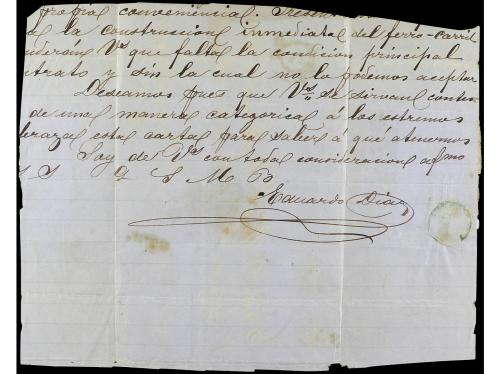 propia conveniencia.
de la construccion inmediata del ferro-carril
V.s que falta la condicion principal
trato y sin la cual no lo podemos aceptar
Deseamos pues que V.s se sirvan contes
de una manera categorica á los estremos
esta carta para saber á qué atenernos
Soy de V.s con toda consideracion af.mo
S S Q S M B
Eduardo Diaz